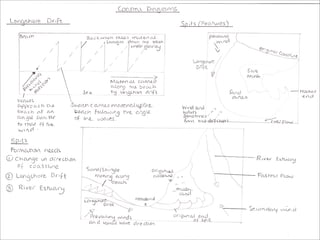 Coastal Diagrams
Longshore Drift
Beach
Backwash takes material
straight down the beach
under gravity
Prevailing
wind
direction
Sea
Material carried
along the beach
by longshore drift
Waves
approach the
beach at an
angle similar
to that of the
wind
Swash carries material up the
beach following the angle
of the waves
Spits (Features)
Prevailing
wind
Original Coastline
Longshore
Drift
Salt
marsh
Sand
dunes
Hooked
end
Wind and
waves
Spits
Formation needs
① Change in direction
of coastline
② Longshore Drift
③ River Estuary
Sand/Shingle
moving along
beach
original
coastline
Longshore
Drift
headland
mudflats
Prevailing winds
and usual wave direction
original end
of spit
River Estuary
River Flow
Secondary wind